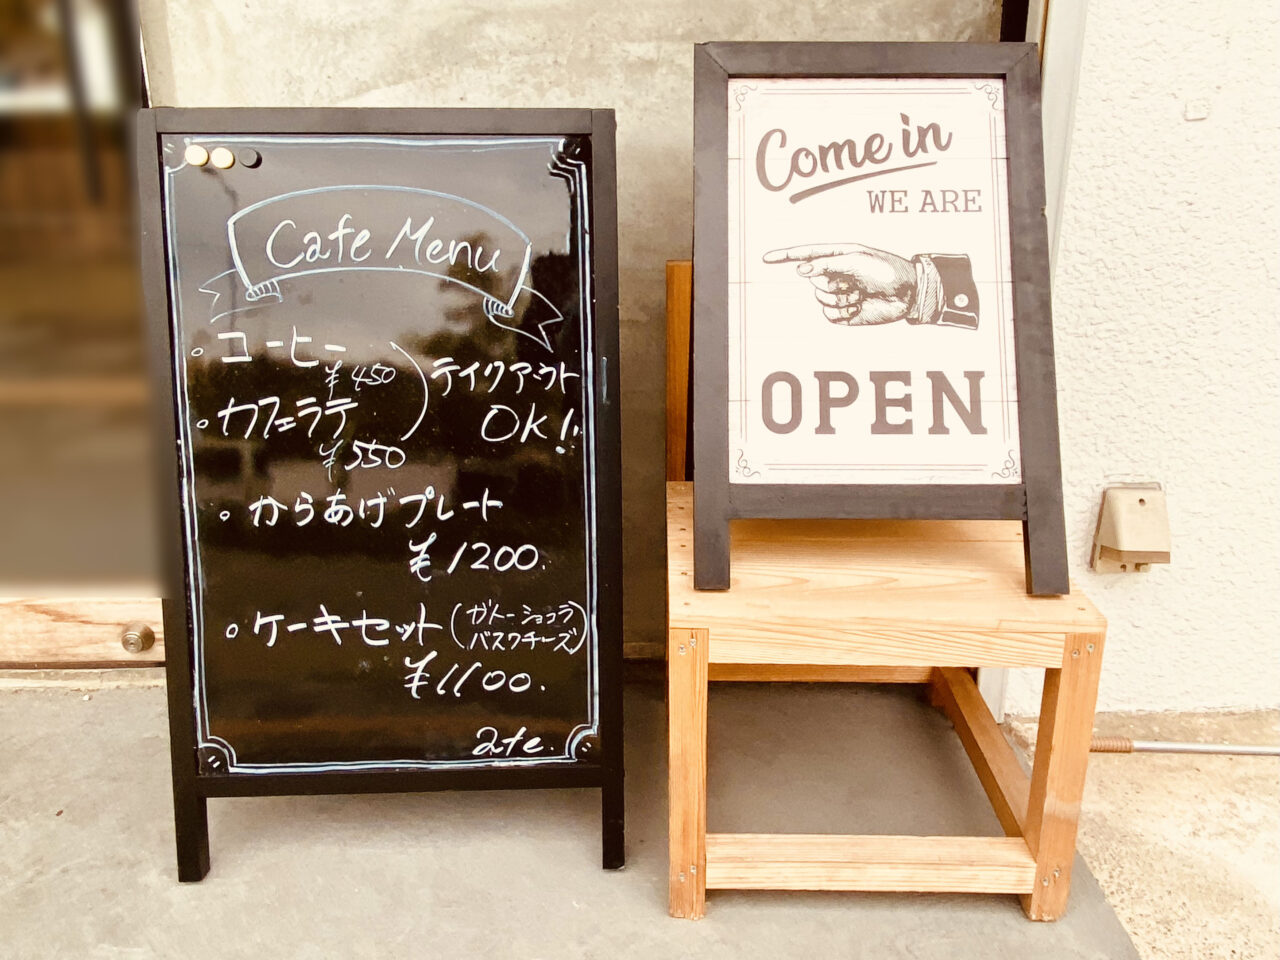 Cafe Menu
。コーヒー
¥450
。カフェラテ
¥550
テイクアウト
OK!!
。からあげプレート
¥1200.
。ケーキセット(ガトーショコラ
バスクチーズ)
¥1100.
Come in
WE ARE
OPEN